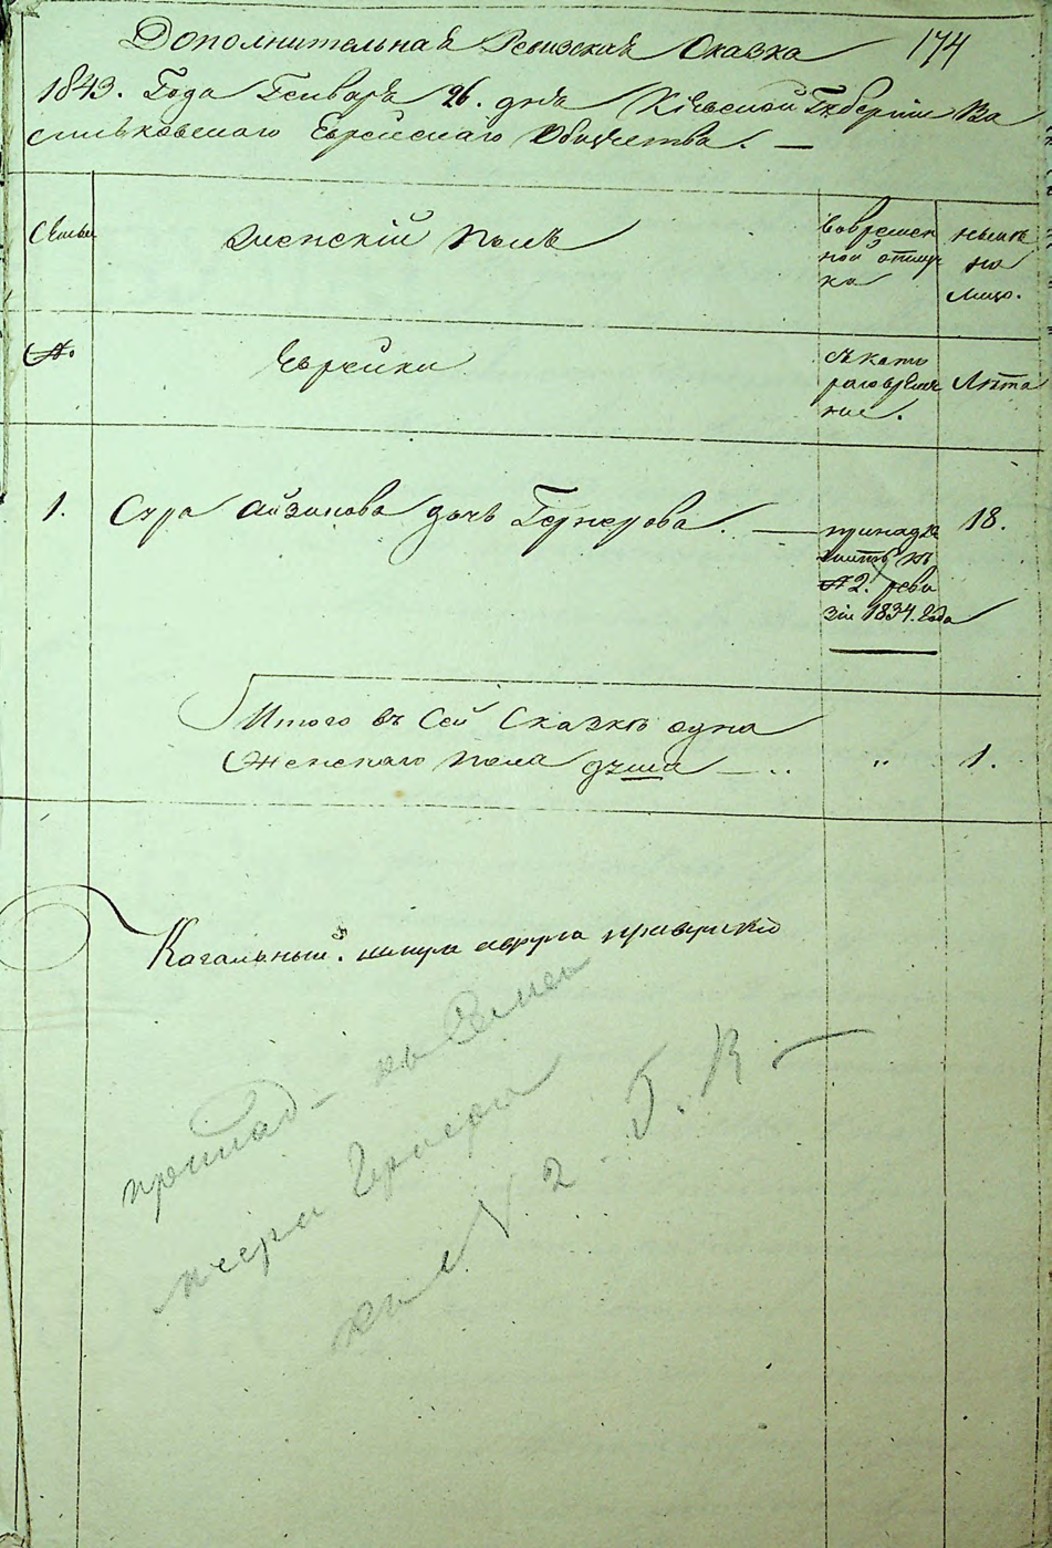 Дополнительная Ревизская Сказка 174
1843. Года Генваря 26. дня Кіевской Губерніи Ва
сильковского Еврейскаго Общества. —
Семьи
Женскій Полъ
Вовремен
ной отлуч
ки
нынѣ
на
лицо.
№.
Еврейки
съ кото
раго врѣме
ни.
Лѣта
1. Сура Айзикова дочь Гернерова. — 18.
принадле
житъ къ
№ 2. реви
зіи 1834. Года
Итого въ Сей Сказкѣ одна
Женскаго Пола душа — .. " 1.
Кагальный.
принад – къ Семьи
къ № 2. Г. В –